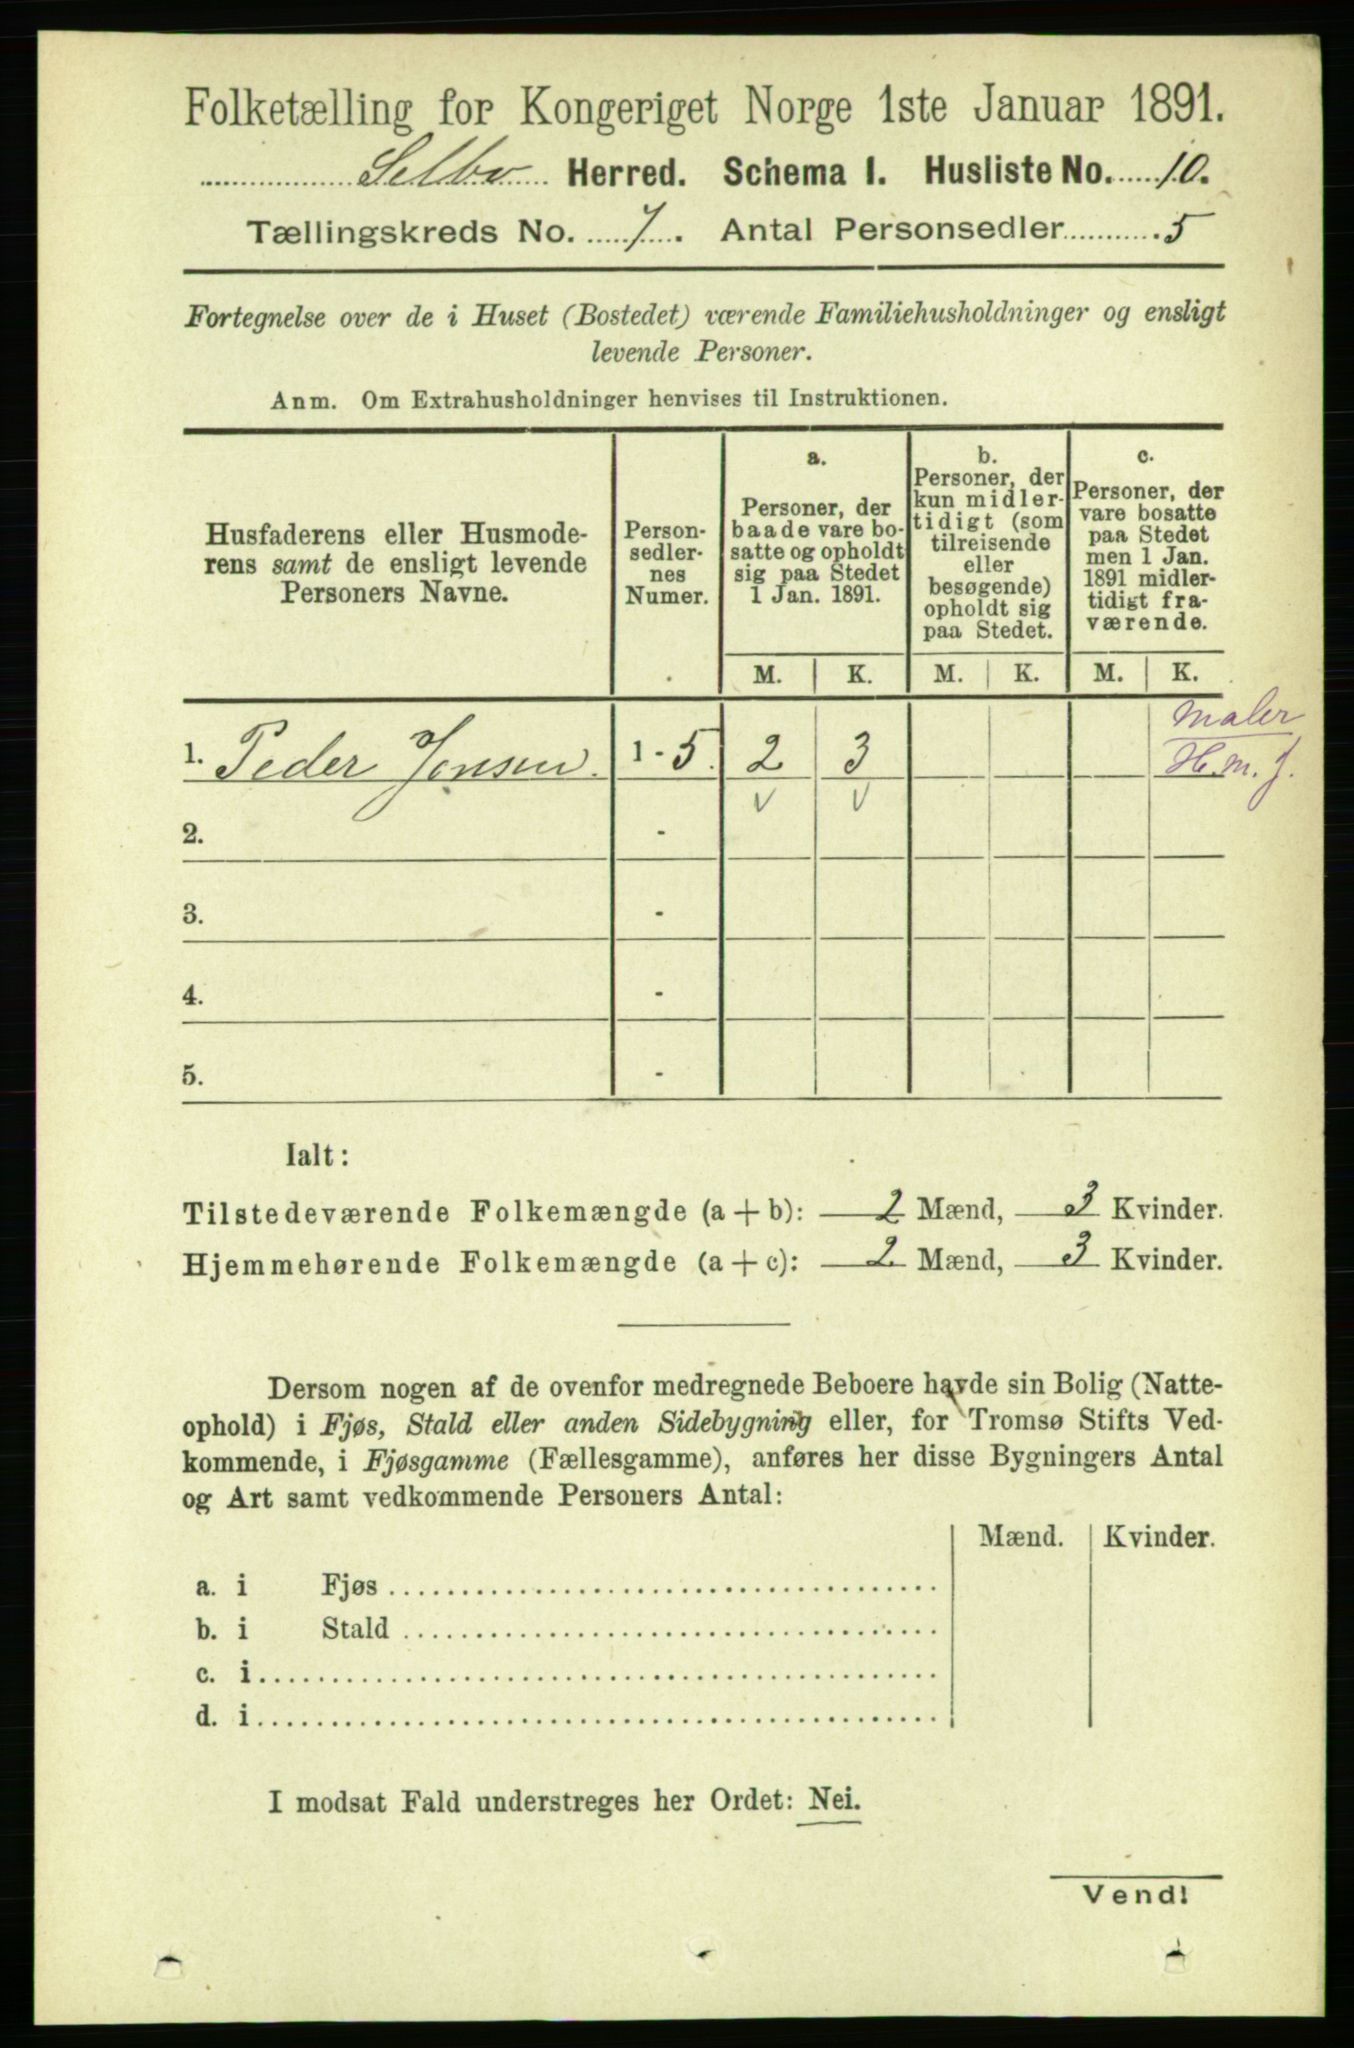 Folketælling for Kongeriget Norge 1ste Januar 1891.
Selbu Herred. Schema I. Husliste No. 10.
Tællingskreds No. 7. Antal Personsedler 5
Fortegnelse over de i Huset (Bostedet) værende Familiehusholdninger og ensligt
levende Personer.
Anm. Om Extrahusholdninger henvises til Instruktionen.
Husfaderens eller Husmode-
rens samt de ensligt levende
Personers Navne.
Person-
sedler-
nes
Numer.
a.
Personer, der
baade vare bo-
satte og opholdt
sig paa Stedet
1 Jan. 1891.
b.
Personer, der
kun midler-
tidigt (som
tilreisende
eller
besøgende)
opholdt sig
paa Stedet.
c.
Personer, der
vare bosatte
paa Stedet
men 1 Jan.
1891 midler-
tidigt fra-
værende.
M. K. M. K. M. K.
maler
1. Peder Jensen. 1 - 5. 2 3 H. m. J.
v v
2. -
3. -
4. -
5. -
Ialt:
Tilstedeværende Folkemængde (a + b): 2 Mænd, 3 Kvinder.
Hjemmehørende Folkemængde (a + c): 2 Mænd, 3 Kvinder.
Dersom nogen af de ovenfor medregnede Beboere havde sin Bolig (Natte-
ophold) i Fjøs, Stald eller anden Sidebygning eller, for Tromsø Stifts Ved-
kommende, i Fjøsgamme (Fællesgamme), anføres her disse Bygningers Antal
og Art samt vedkommende Personers Antal:
Mænd. Kvinder.
a. i Fjøs
b. i Stald
c. i
d. i
I modsat Fald understreges her Ordet: Nei.
Vend!